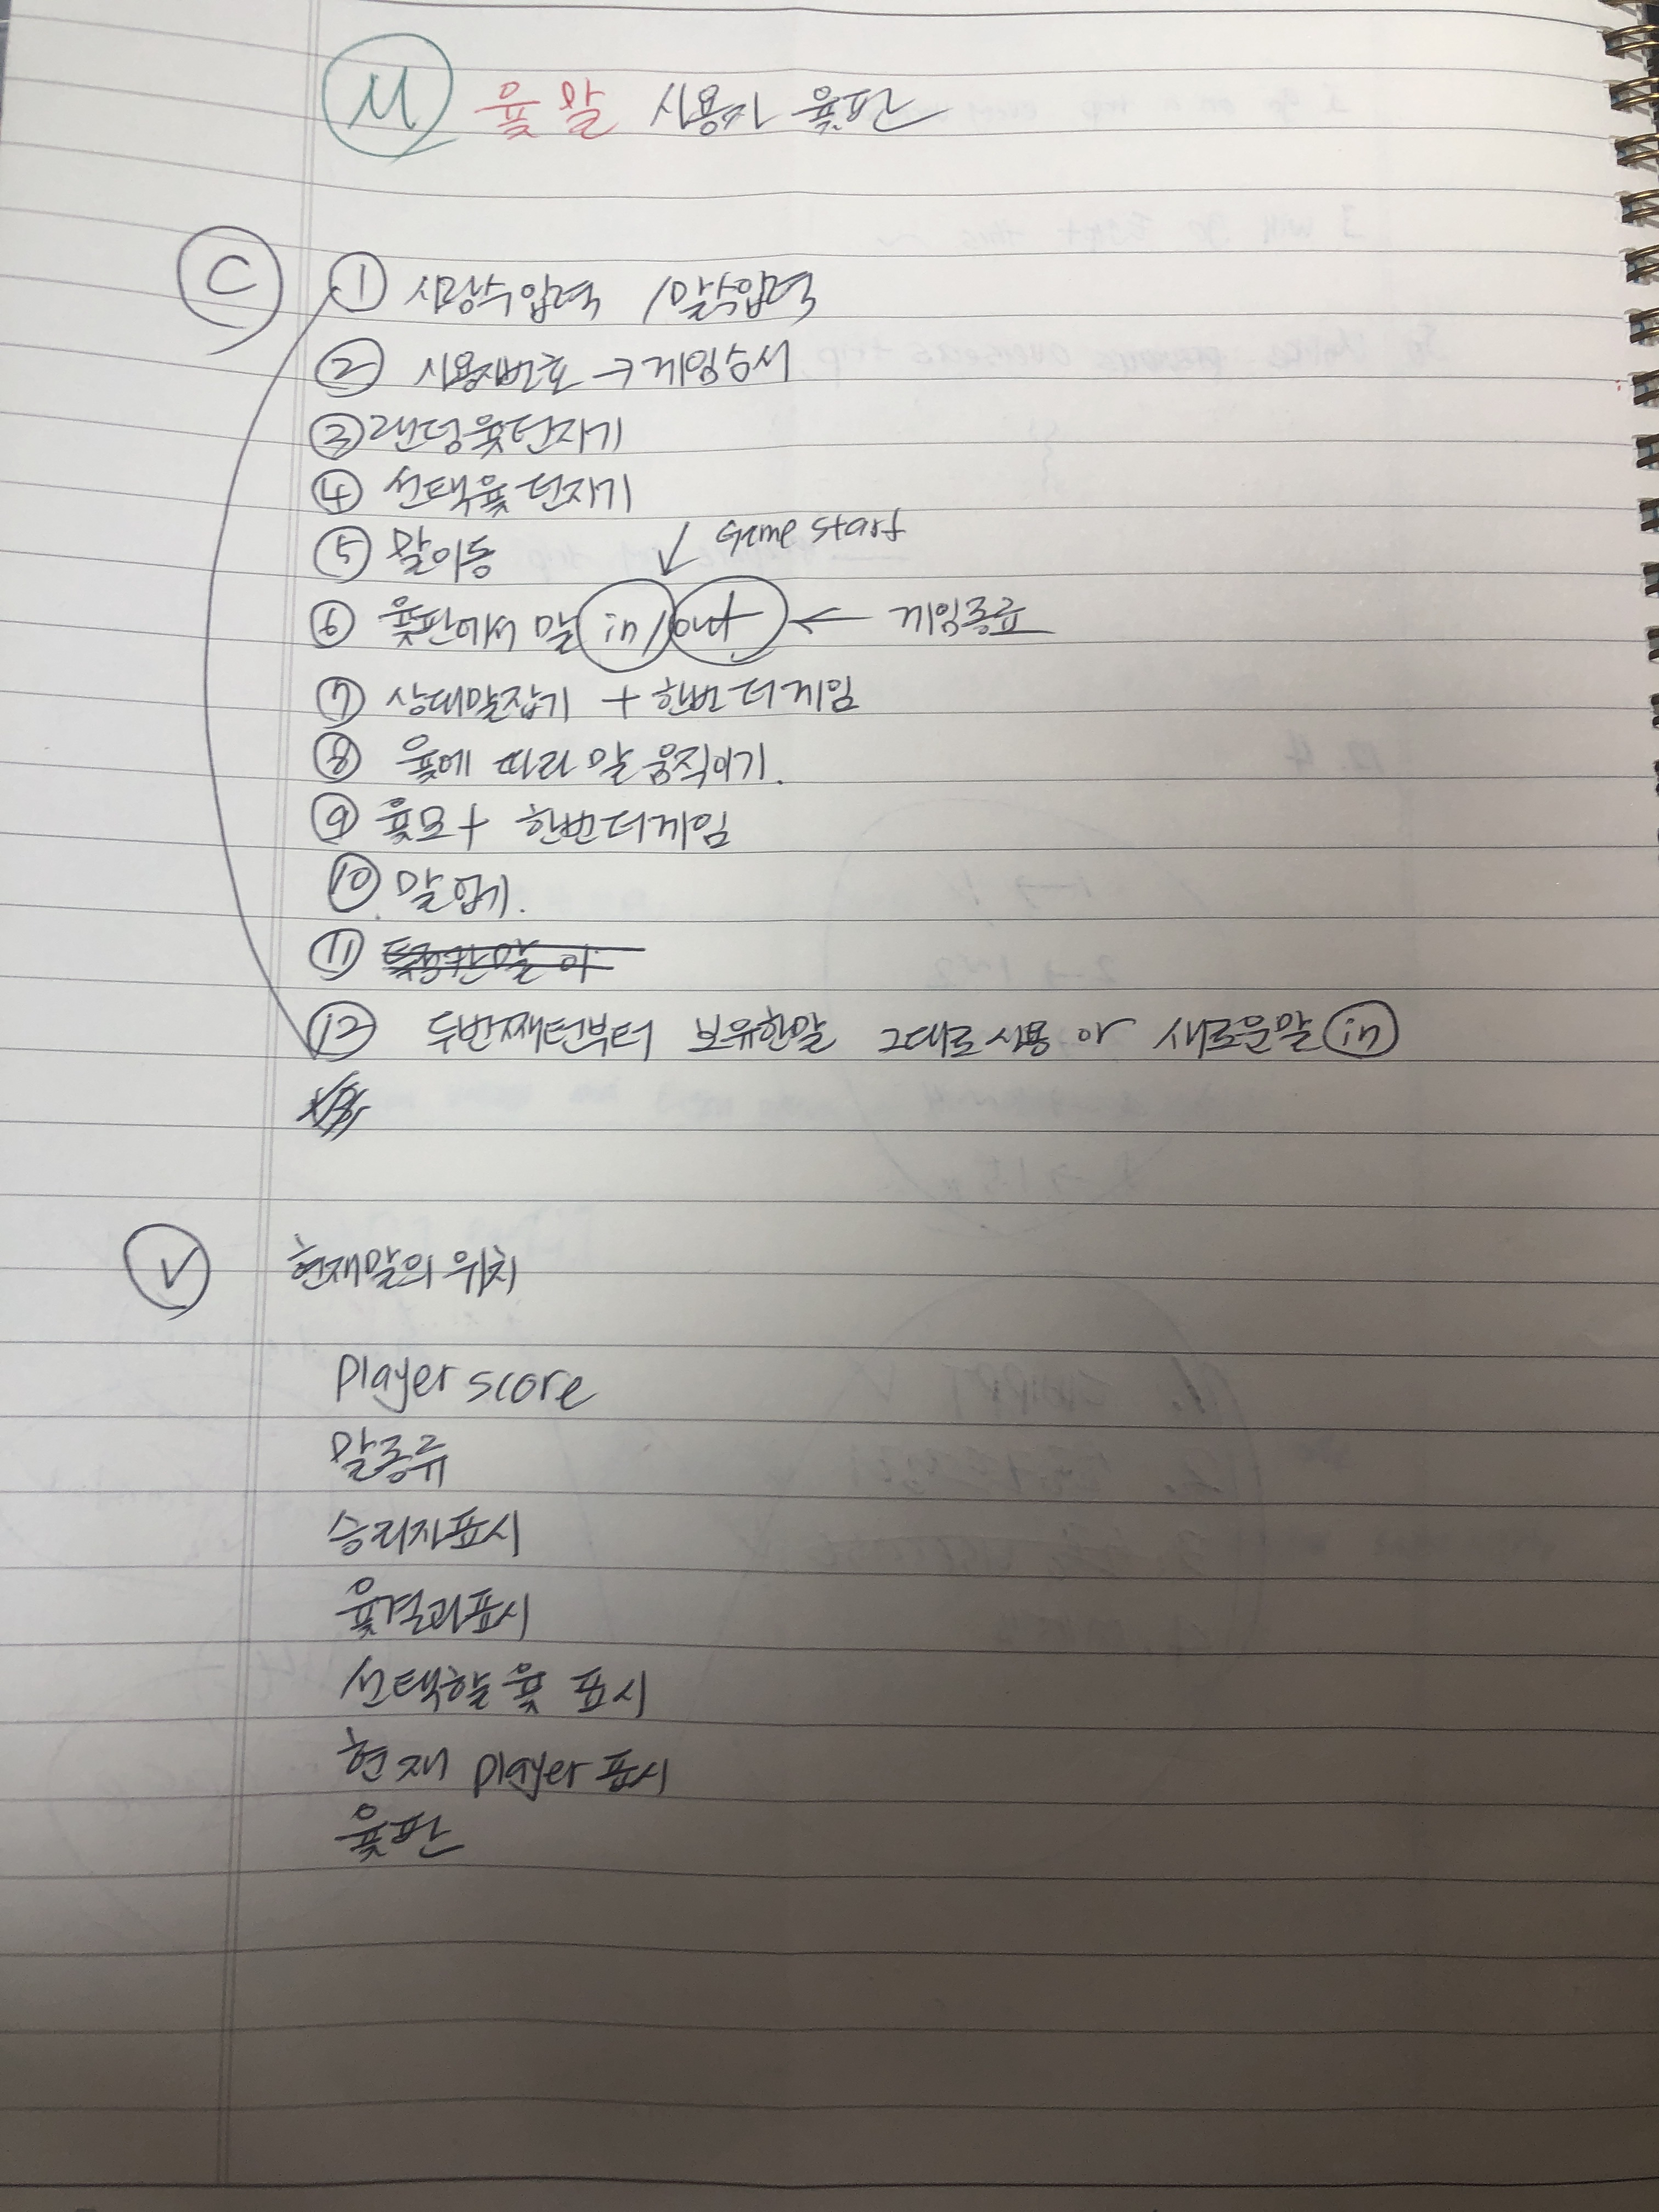 M 윷 말 사용자 윷판
C ① 사람수입력 / 말수입력
② 사용자번호 → 게임순서
③ 랜덤윷던지기
④ 선택윷던지기
⑤ 말이동
Game start
⑥ 윷판에서 말 in/out ← 게임종료
⑦ 상대말잡기 + 한번더게임
⑧ 윷에 따라 말 움직이기.
⑨ 윷모 + 한번더게임
⑩ 말업기.
⑪
⑫ 두번째턴부터 보유한말 그대로사용 or 새로운말 in
V 현재말의 위치
Player score
말종류
승리자표시
윷결과표시
선택할 윷 표시
현재 player 표시
윷판